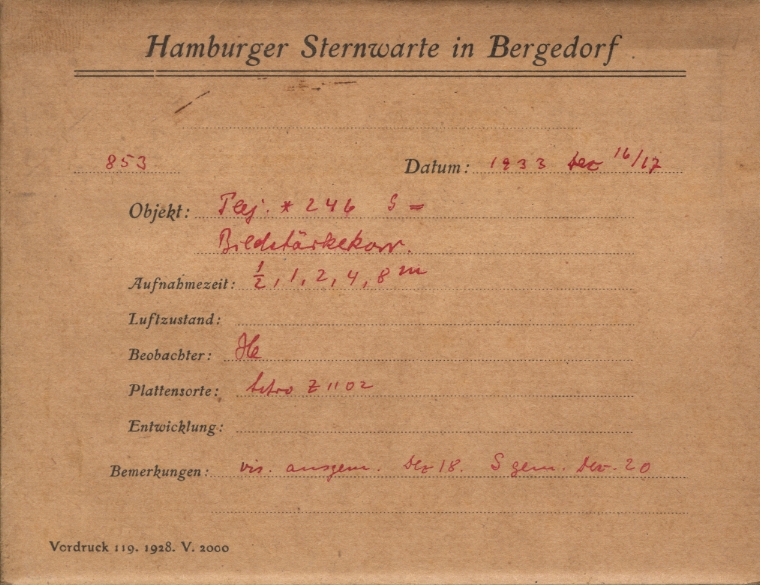 Hamburger Sternwarte in Bergedorf
853 Datum: 1933 Dez 16/17
Objekt: Plej. * 246 S =
Bildstärkekorr.
Aufnahmezeit: 1/2, 1, 2, 4, 8 m
Luftzustand:
Beobachter:
Plattensorte: Z 1102
Entwicklung:
Bemerkungen: vis. ausgem. Dez 18. S gem. Dez. 20
Vordruck 119. 1928. V. 2000